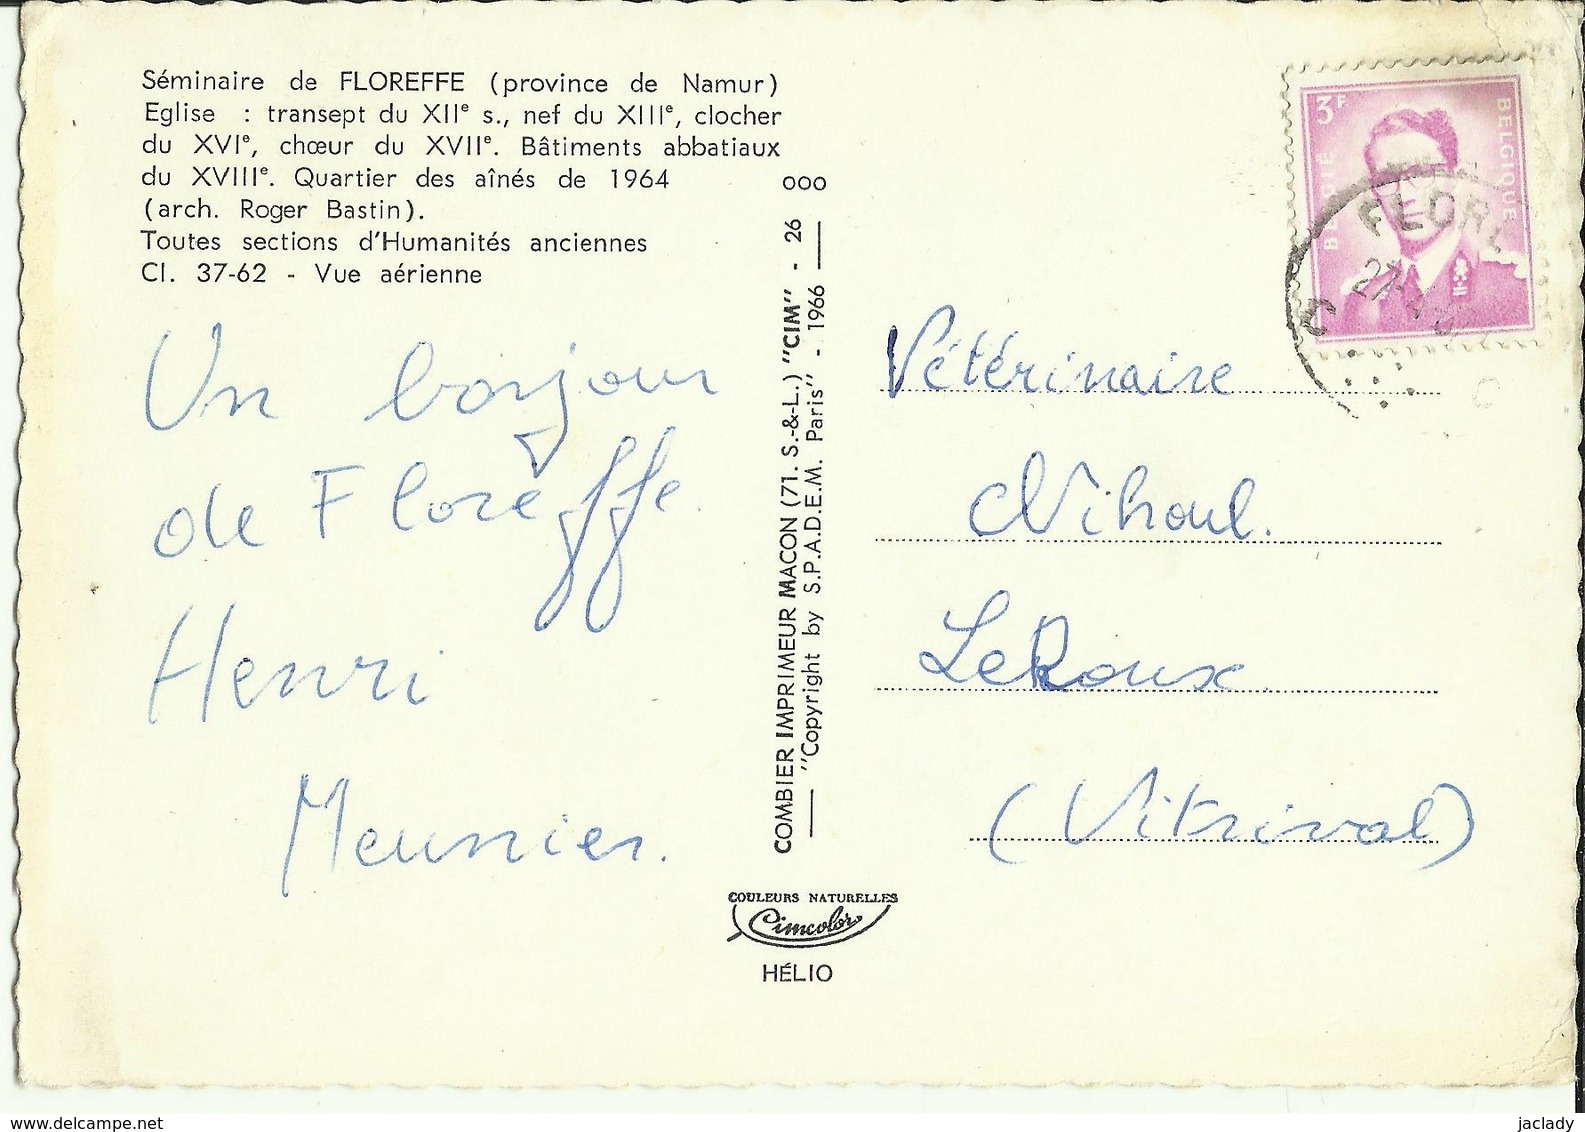 Séminaire de FLOREFFE (province de Namur)
Eglise : transept du XIIe s., nef du XIIIe, clocher
du XVIe, chœur du XVIIe. Bâtiments abbatiaux
du XVIIIe. Quartier des aînés de 1964
(arch. Roger Bastin).
Toutes sections d'Humanités anciennes
Cl. 37-62 - Vue aérienne
Un bonjour
de Floreffe
Henri
Meunier.
COMBIER IMPRIMEUR MACON (71. S.-&-L.) "CIM" - 26 ooo
"Copyright by S.P.A.D.E.M. Paris" - 1966
COULEURS NATURELLES
Cimcolor
HÉLIO
3F
BELGIË
BELGIQUE
FLORE
27
C
Vétérinaire
Nihoul.
LeRoux
(Vitrival)
www.delcampe.net
jaclady